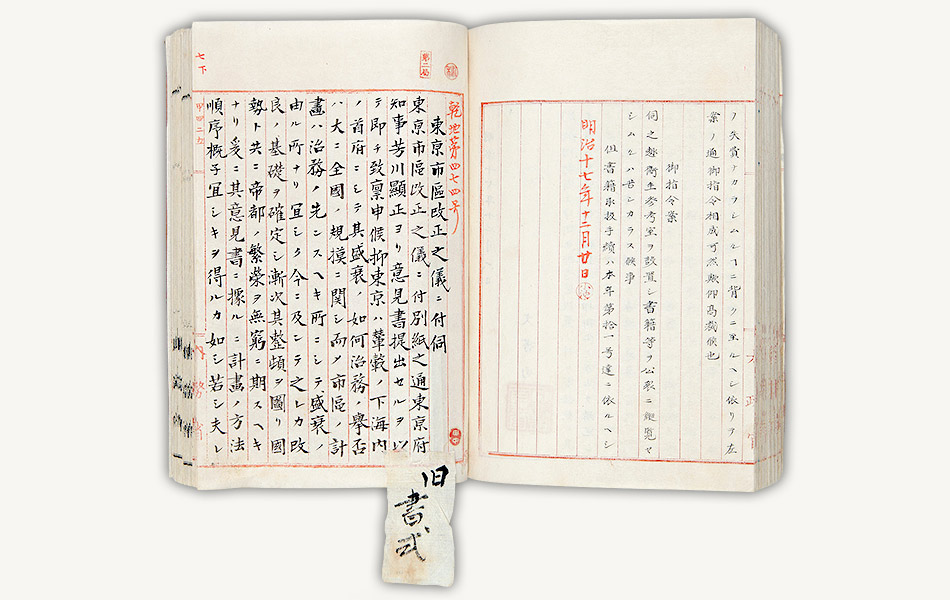 ノ失費ナカラシムルヿニ背クニ至ルヘシ依リテ左
案ノ通御指令相成可然歟仰高裁候也
御指令案
伺之趣衛生参考室ヲ設置シ書籍等ヲ公衆ニ縦覧セ
シムルハ苦シカラス候事
但書籍取扱手續ハ本年第拾一号達ニ依ルヘシ
明治十七年十二月廿日
第二局
乾地第四七四号
東京市區改正之儀ニ付伺
東京市區改正之儀ニ付別紙之通東京府
知事芳川顯正ヨリ意見書提出セルヲ以
テ即チ致稟申候抑東京ハ輦轂ノ下海内
ノ首府ニシテ其盛衰ノ如何治務ノ舉否
ハ大ニ全國ノ規摸ニ関シ而〆市區ノ計
畫ハ治務ノ先ンスヘキ所ニシテ盛衰ノ
由ル所ナリ宜シク今ニ及ンテ之レカ改
良ノ基礎ヲ確定シ漸次其整頓ヲ圖リ國
勢ト共ニ帝都ノ繁榮ヲ無窮ニ期スヘキ
ナリ爰ニ其意見書ニ據ルニ計畫ノ方法
順序概子宜シキヲ得ルカ如シ若シ夫レ
七下
内務省
太政官
旧
書式